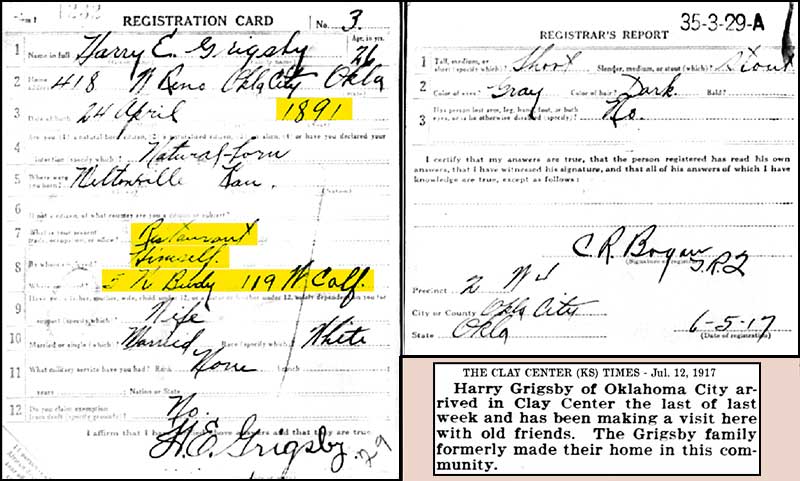 1232
REGISTRATION CARD No. 3.
1 Name in full Harry E. Grigsby Age, in yrs. 26
2 Home address 418 N Reno Okla City Okla
3 Date of birth 24 April 1891
4 Are you (1) a natural-born citizen, (2) a naturalized citizen, (3) an alien, (4) or have you declared your
intention (specify which)? Natural-born
5 Where were you born? Kan.
6 If not a citizen, of what country are you a citizen or subject?
7 What is your present trade, occupation, or office? Restaurant
8 By whom employed? Himself.
Where employed? 119 W Calf.
9 Have you a father, mother, wife, child under 12, or a sister or brother under 12, solely dependent on you for
support (specify which)? Wife
10 Married or single (which)? Married Race (specify which)? White
11 What military service have you had? Rank None Branch
years Nation or State
12 Do you claim exemption from draft (specify grounds)? No.
I affirm that I have verified above answers and that they are true.
H. E. Grigsby
29
35-3-29-A
REGISTRAR'S REPORT
1 Tall, medium, or short (specify which)? Short Slender, medium, or stout (which)? Stout
2 Color of eyes? Gray Color of hair? Dark. Bald?
3 Has person lost arm, leg, hand, foot, or both eyes, or is he otherwise disabled (specify)? No.
I certify that my answers are true, that the person registered has read his own
answers, that I have witnessed his signature, and that all of his answers of which I have
knowledge are true, except as follows:
C. R. Bogan
(Signature of registrar)
Precinct 2
City or County Okla City
State Okla
6-5-17
(Date of registration)
THE CLAY CENTER (KS) TIMES - Jul. 12, 1917
Harry Grigsby of Oklahoma City ar-
rived in Clay Center the last of last
week and has been making a visit here
with old friends. The Grigsby family
formerly made their home in this com-
munity.